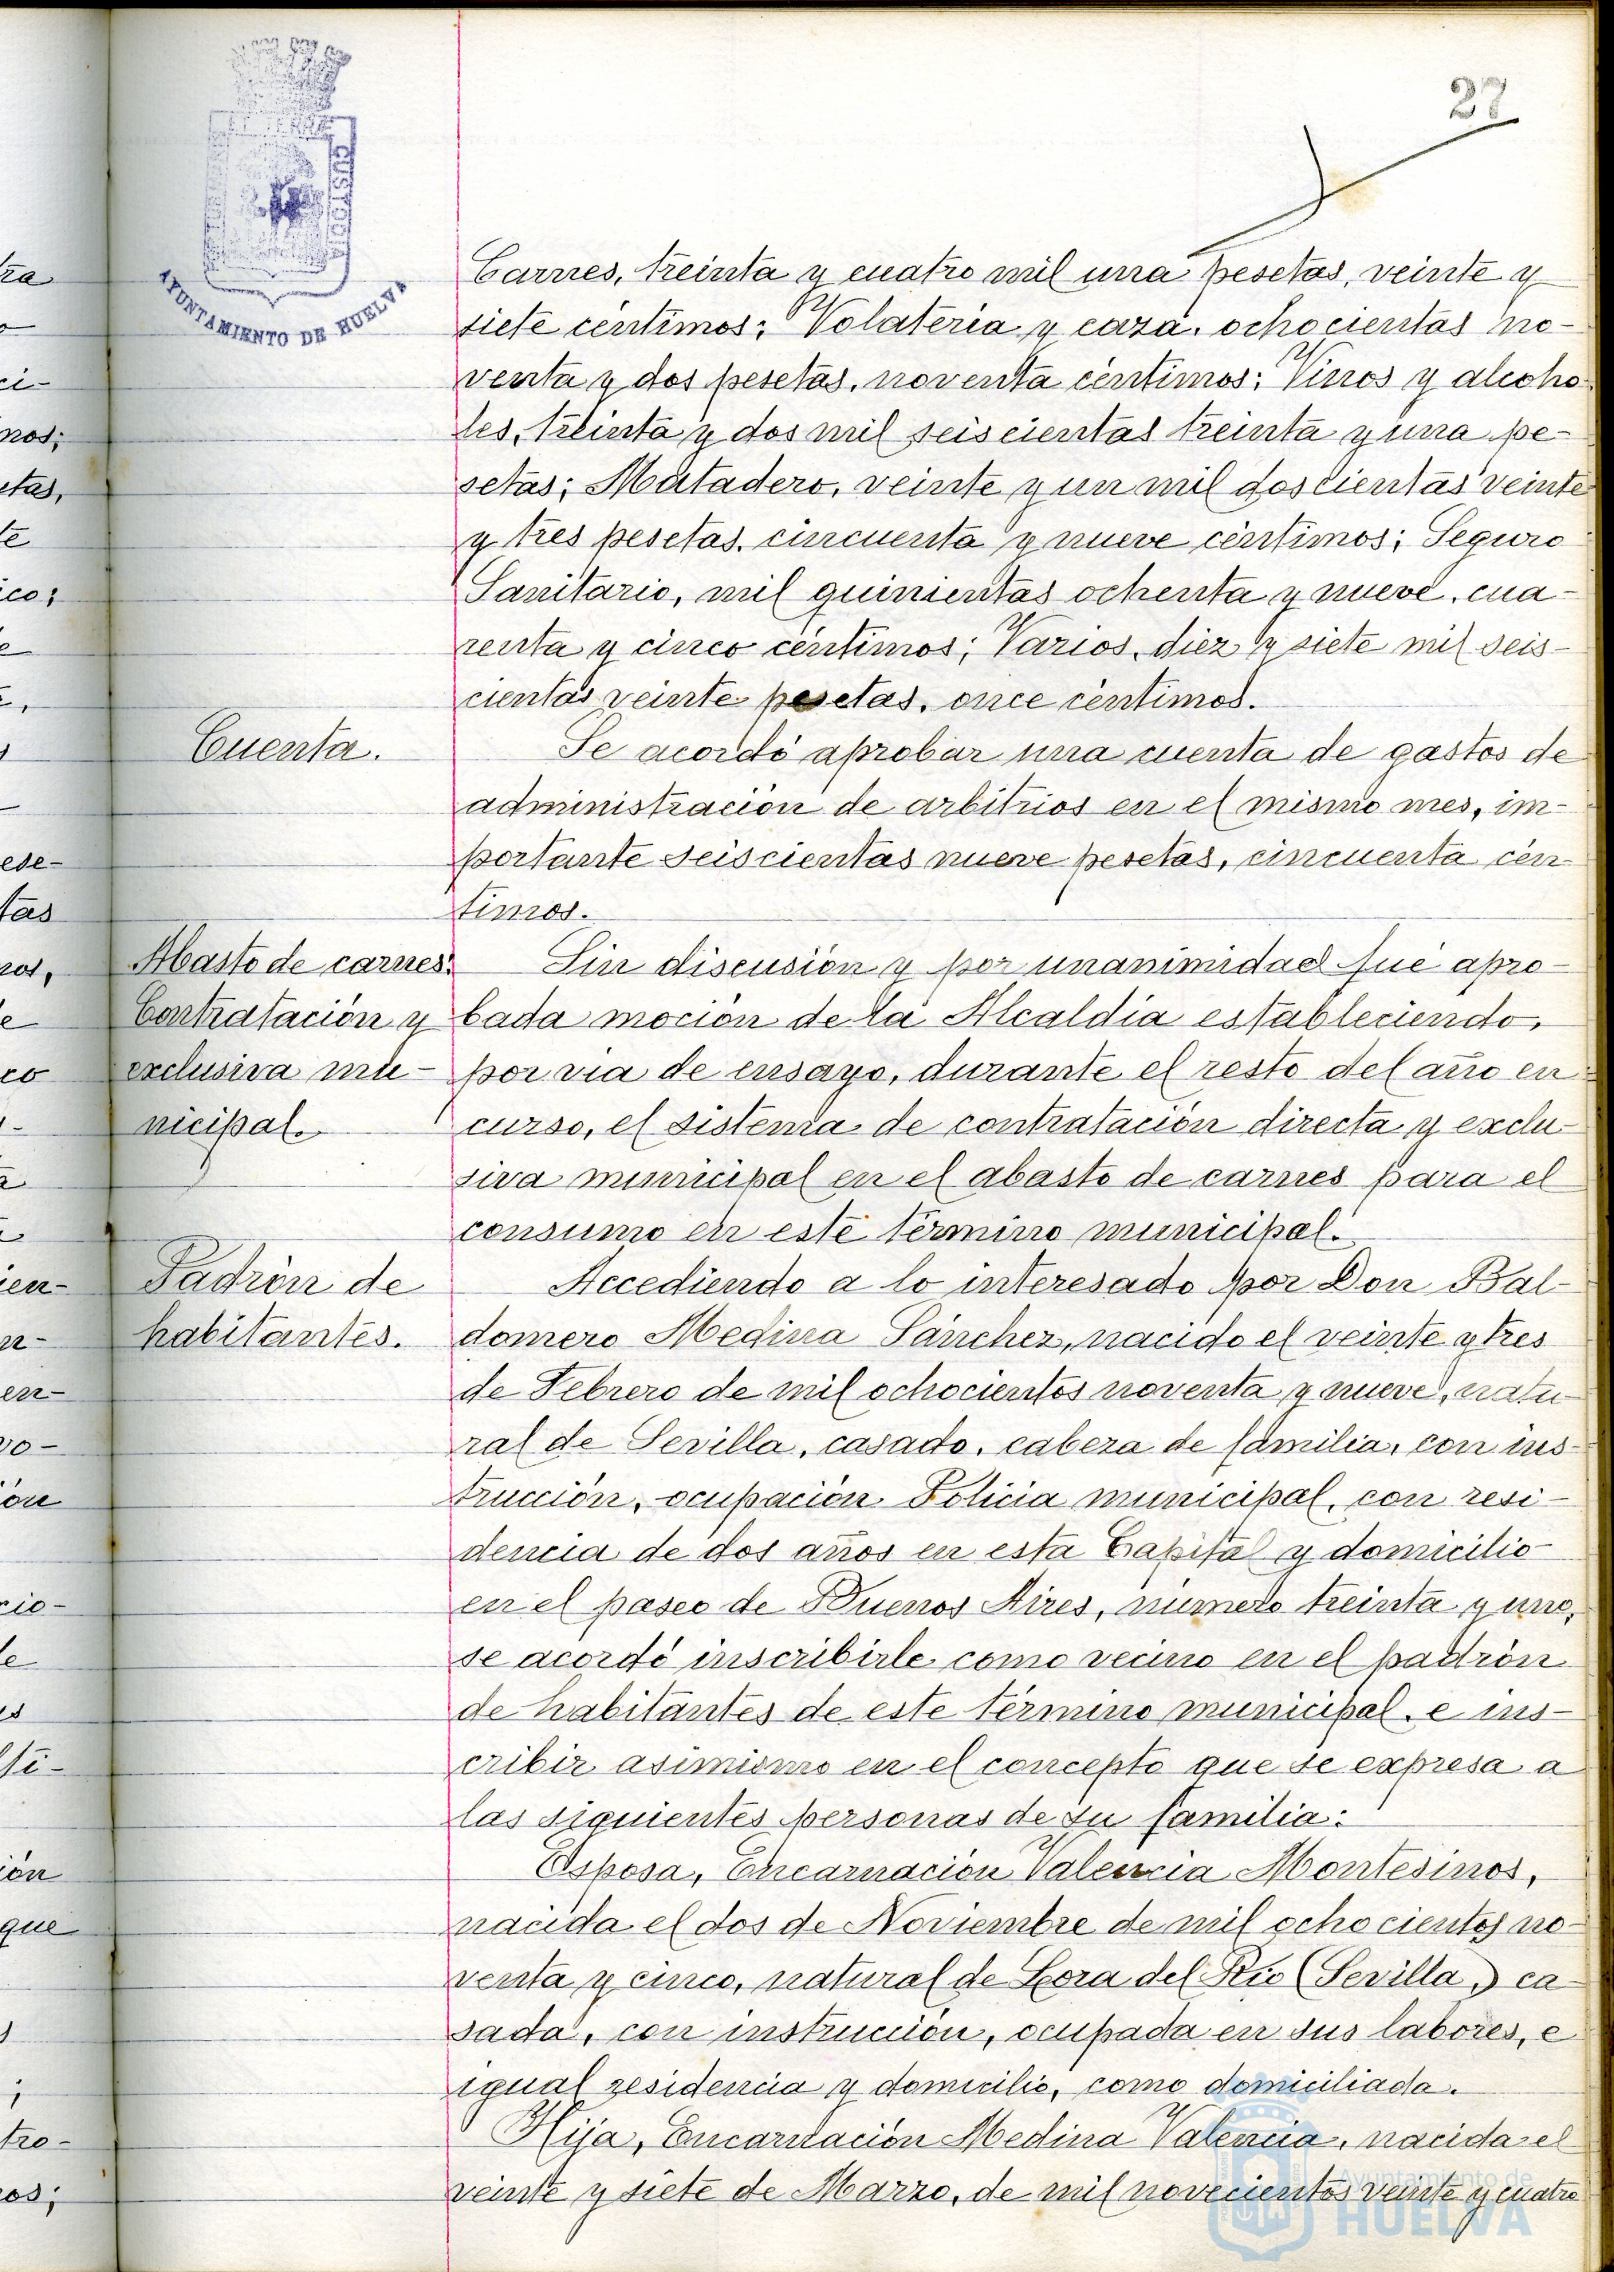 27
CUSTODIA
AYUNTAMIENTO DE HUELVA
Carnes, treinta y cuatro mil una pesetas, veinte y
siete céntimos; Volatería y caza, ochocientas no-
venta y dos pesetas, noventa céntimos; Vinos y alcoho-
les, treinta y dos mil seiscientas treinta y una pe-
setas; Matadero, veinte y un mil doscientas veinte
y tres pesetas, cincuenta y nueve céntimos; Seguro
Sanitario, mil quinientas ochenta y nueve, cua-
renta y cinco céntimos; Varios, diez y siete mil seis-
cientas veinte pesetas, once céntimos.
Cuenta.
Se acordó aprobar una cuenta de gastos de
administración de arbitrios en el mismo mes, im-
portante seiscientas nueve pesetas, cincuenta cén-
timos.
Abasto de carnes:
Contratación y
exclusiva mu-
nicipal.
Sin discusión y por unanimidad fué apro-
bada moción de la Alcaldía estableciendo,
por vía de ensayo, durante el resto del año en
curso, el sistema de contratación directa y exclu-
siva municipal en el abasto de carnes para el
consumo en este término municipal.
Padrón de
habitantes.
Accediendo a lo interesado por Don Bal-
domero Medina Sánchez, nacido el veinte y tres
de Febrero de mil ochocientos noventa y nueve, natu-
ral de Sevilla, casado, cabeza de familia, con ins-
trucción, ocupación Policía municipal, con resi-
dencia de dos años en esta Capital y domicilio
en el paseo de Buenos Aires, número treinta y uno,
se acordó inscribirle como vecino en el padrón
de habitantes de este término municipal, e ins-
cribir asimismo en el concepto que se expresa a
las siguientes personas de su familia:
Esposa, Encarnación Valencia Montesinos,
nacida el dos de Noviembre de mil ochocientos no-
venta y cinco, natural de Lora del Río (Sevilla,) ca-
sada, con instrucción, ocupada en sus labores, e
igual residencia y domicilio, como domiciliada.
Hija, Encarnación Medina Valencia, nacida el
veinte y siete de Marzo, de mil novecientos veinte y cuatro
Ayuntamiento de
HUELVA